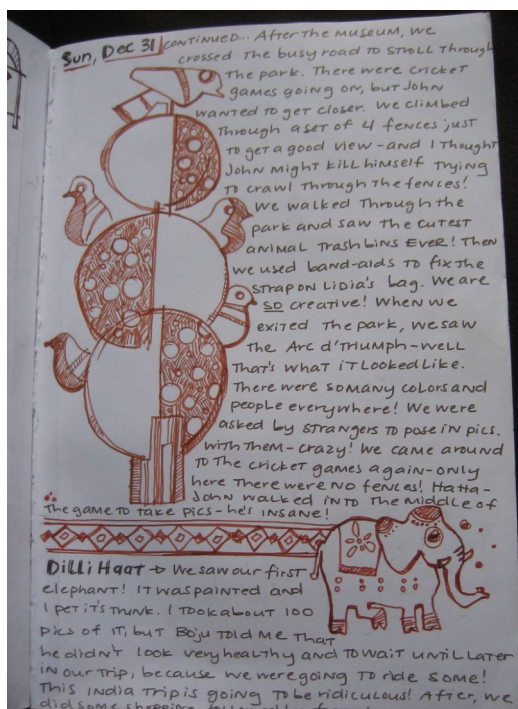 Sun, Dec 31 CONTINUED... AFTER THE MUSEUM, WE
CROSSED THE BUSY ROAD TO STROLL THROUGH
THE PARK. THERE WERE CRICKET
GAMES GOING ON, BUT JOHN
WANTED TO GET CLOSER. WE CLIMBED
THROUGH A SET OF 4 FENCES JUST
TO GET A GOOD VIEW - AND I THOUGHT
JOHN MIGHT KILL HIMSELF TRYING
TO CRAWL THROUGH THE FENCES!
WE WALKED THROUGH THE
PARK AND SAW THE CUTEST
ANIMAL TRASH BINS EVER! THEN
WE USED BAND-AIDS TO FIX THE
STRAP ON LIDIA'S BAG. WE ARE
SO CREATIVE! WHEN WE
EXITED THE PARK, WE SAW
THE ARC D'THUMPH - WELL
THAT'S WHAT IT LOOKED LIKE.
THERE WERE SO MANY COLORS AND
PEOPLE EVERYWHERE! WE WERE
ASKED BY STRANGERS TO POSE IN PICS.
WITH THEM - CRAZY! WE CAME AROUND
TO THE CRICKET GAMES AGAIN - ONLY
HERE THERE WERE NO FENCES! HA HA -
JOHN WALKED INTO THE MIDDLE OF
THE GAME TO TAKE PICS - HE'S INSANE!
DILLI HAAT → WE SAW OUR FIRST
ELEPHANT! IT WAS PAINTED AND
I PET IT'S TRUNK. I TOOK ABOUT 100
PICS OF IT, BUT BOJU TOLD ME THAT
HE DIDN'T LOOK VERY HEALTHY AND TO WAIT UNTIL LATER
IN OUR TRIP, BECAUSE WE WERE GOING TO RIDE SOME!
THIS INDIA TRIP IS GOING TO BE RIDICULOUS! AFTER, WE
DID SOME SHOPPING